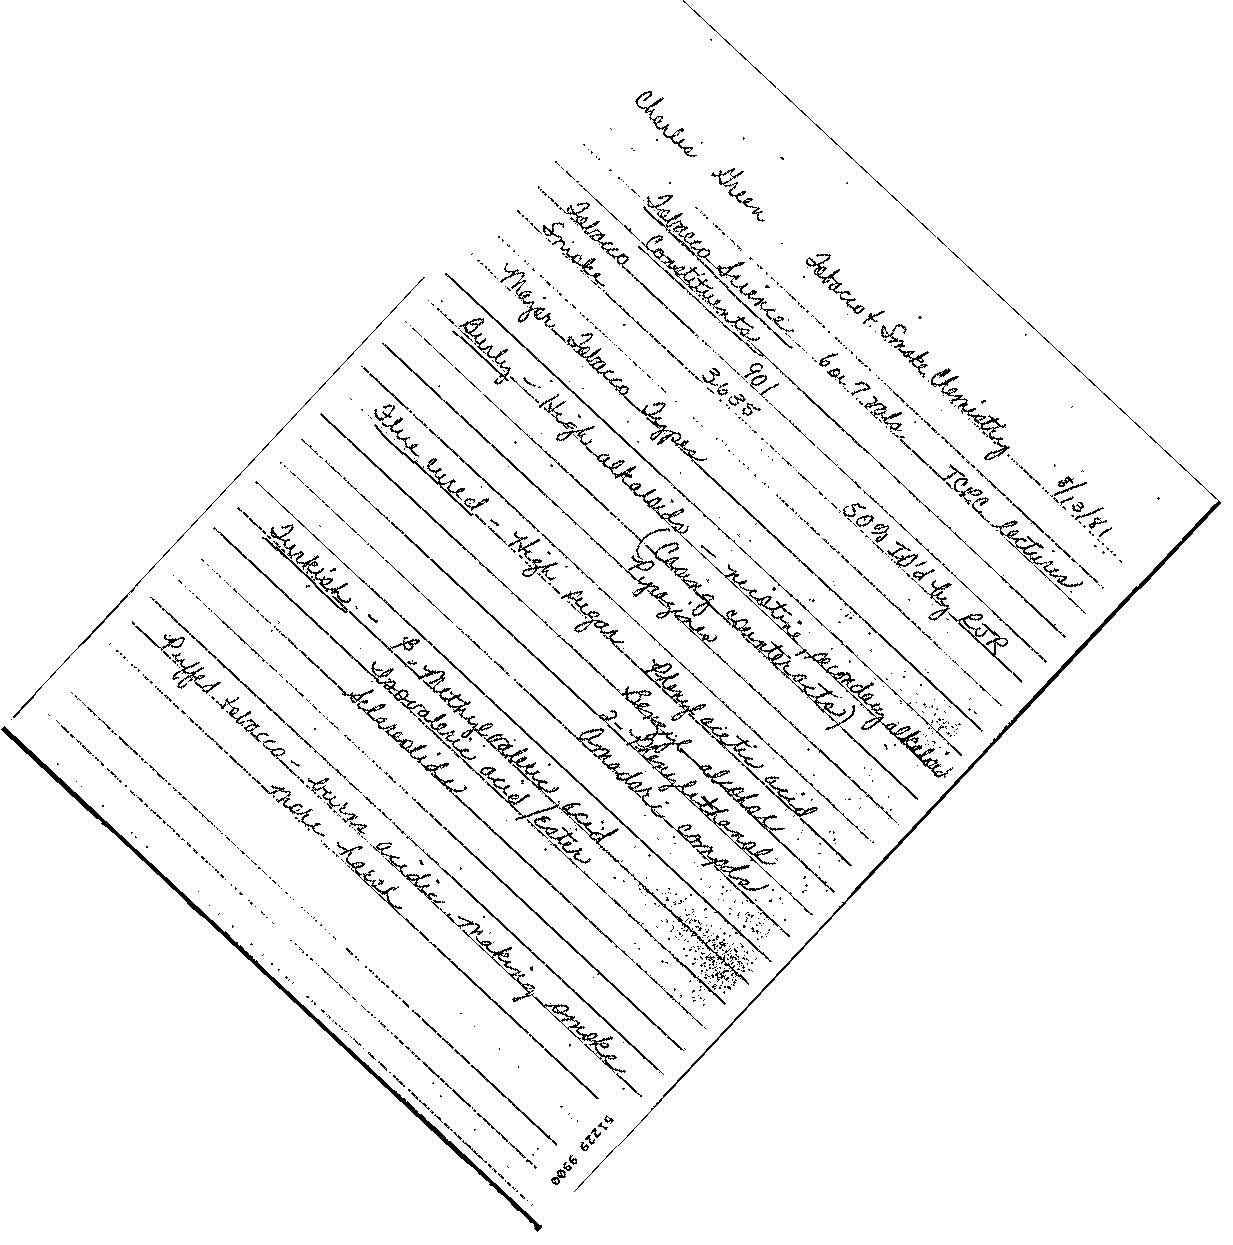 Charles Green Tobacco & Smoke Chemistry 8/13/81
Tobacco Science 6 or 7 vols. TCRC lectures
Constituents
Tobacco 901
Smoke 3635 50% ID'd by RJR
Major Tobacco Types
Burley - High alkaloids - nicotine, secondary alkaloids
(Casing counteracts)
Pyrazines
Flue cured - High sugar Phenylacetic acid
Benzyl alcohol
2-Phenylethanol
Amadori compds
Turkish - β-Methylvaleric acid
Isovaleric acid/ester
Sclareolide
Puffed tobacco - burns acidic making smoke
more harsh
51229 9900